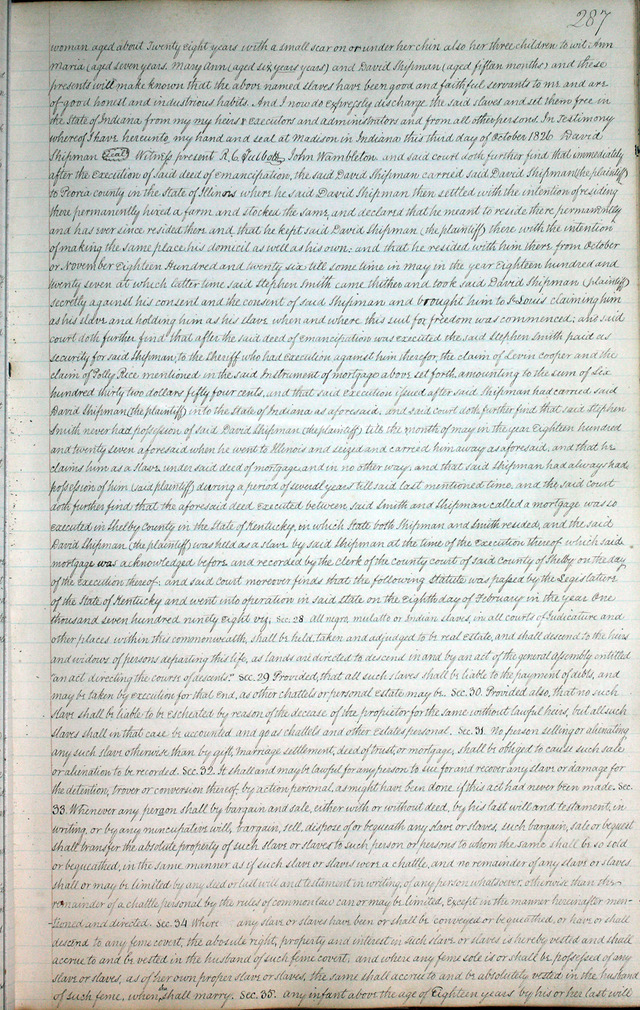 287
woman aged about Twenty Eight years with a small scar on or under her chin also her three children to wit: Ann
Maria (aged seven years. Mary Ann (aged six years years) and David Shipman (aged fiftan months) and these
presents will make known that the above named slaves have been good and faithful servants to me and are
of good honest and industrious habits. And I now do expressly discharge the said slaves and set them free in
the State of Indiana from my my heirs & Executors and administrators and from all other persons In Testimony
whereof I have hereunto, my hand and seal at Madison in Indiana this third day of October 1826 David
Shipman Seal Witness present R. C. John Wambleton. and said court doth further find that immediately
after the Execution of said deed of Emancipation, the said David Shipman carried said David Shipman (the plaintiff)
to Peoria county in the State of Illinois where he said David Shipman then settled with the intention of residing
there permanently hired a farm and stocked the same, and declared that he meant to reside there permanently
and has ever since resided there, and that he kept said David Shipman (the plaintiff) there with the intention
of making the same place his domicil as well as his own: and that he resided with him there from October
or November Eighteen Hundred and twenty six till some time in may in the year Eighteen hundred and
twenty seven at which latter time said Stephen Smith came thither and took said David Shipman (plaintiff)
secretly against his consent and the consent of said Shipman and brought him to St Louis claiming him
as his slave and holding him as his slave when and where this suit for freedom was commenced; and said
court doth further find that after the said deed of emancipation was executed the said Stephen Smith paid as
security for said Shipman, to the Sheriff who had execution against him therefor, the claim of Levin Cooper and the
claim of Polly Rice mentioned in the said Instrument of mortgage above set forth, amounting to the sum of six
hundred thirty two dollars fifty four cents, and that said Execution issued after said Shipman had carried said
David Shipman (the plaintiff) into the State of Indiana as aforesaid, and said court doth further find that said Stephen
Smith never had possession of said David Shipman (the plaintiff) till the month of may in the year Eighteen hundred
and twenty seven aforesaid when he went to Illinois and seized and carried him away as aforesaid, and that he
claims him as a slave under said deed of mortgage and in no other way, and that said Shipman had always had
possession of him (said plaintiff) during a period of several years till said last mentioned time, and the said court
doth further find that the aforesaid deed executed between said Smith and Shipman called a mortgage was so
executed in Shelby County in the State of Kentucky, in which State both Shipman and Smith resided, and the said
David Shipman (the plaintiff) was held as a slave by said Shipman at the time of the execution thereof which said
mortgage was acknowledged before and recorded by the clerk of the county court of said county of Shelby on the day
of the execution thereof; and said court moreover finds that the following Statute was passed by the Legislature
of the State of Kentucky and went into operation in said state on the Eighth day of February in the year One
thousand seven hundred ninety eight viz, Sec. 28. all negro, mulatto or Indian slaves, in all courts of Judicature and
other places within this commonwealth, shall be held, taken and adjudged to be real estate, and shall descend to the heirs
and widows of persons departing this life, as lands are directed to descend in and by an act of the general Assembly entitled
"an act directing the course of descents." Sec. 29 Provided, that all such slaves shall be liable to the payment of debts, and
may be taken by execution for that end, as other chattels or personal estate may be. Sec. 30. Provided also, that no such
slave shall be liable to be escheated by reason of the decease of the proprietor for the same without lawful heirs, but all such
slaves shall in that case be accounted and go as chattels and other estates personal. Sec. 31. No person selling or alienating
any such slave otherwise than by gift, marriage settlement, deed of trust, or mortgage, shall be obliged to cause such sale
or alienation to be recorded. Sec. 32. It shall and may be lawful for any person to sue for and recover any slave or damage for
the detention, trover or conversion thereof, by action personal, as might have been done if this act had never been made. Sec.
33. Whenever any person shall by bargain and sale, either with or without deed, by his last will and testament, in
writing, or by any nuncupative will, bargain, sell, dispose of or bequeath any slave or slaves, such bargain, sale or bequest
shall transfer the absolute property of such slave or slaves to such person or persons to whom the same shall be so sold
or bequeathed, in the same manner as if such slave or slaves were a chattle, and no remainder of any slave or slaves
shall or may be limited by any deed or last will and testament in writing, of any person whatsoever, otherwise than the
remainder of a chattle personal by the rules of common law can or may be limited, except in the manner hereinafter men-
tioned and directed. Sec. 34 Where any slave or slaves have been or shall be conveyed or bequeathed, or have or shall
descend to any feme covert, the absolute right, property and interest in such slave or slaves is hereby vested and shall
accrue to and be vested in the husband of such feme covert, and where any feme sole is or shall be possessed of any
slave or slaves, as of her own proper slave or slaves, the same shall accrue to and be absolutely vested in the husband
of such feme, when she shall marry. Sec. 35. any infant above the age of Eighteen years by his or her last will